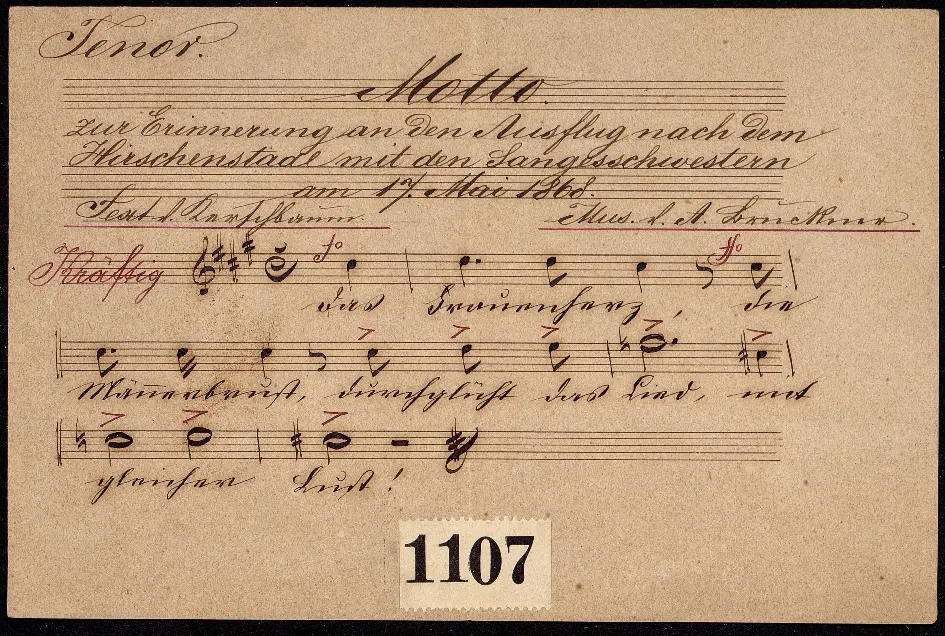 Tenor.
Motto.
zur Erinnerung an den Ausflug nach dem
Hirschenstade mit den Sangesschwestern
am 17. Mai 1868.
Text v. Kerschbaum
Mus. v. A. Bruckner.
Kräftig
fo
ffo
das Frauenherz, die
Männerbrust, durchglüht das Lied, mit
gleicher Lust!
1107